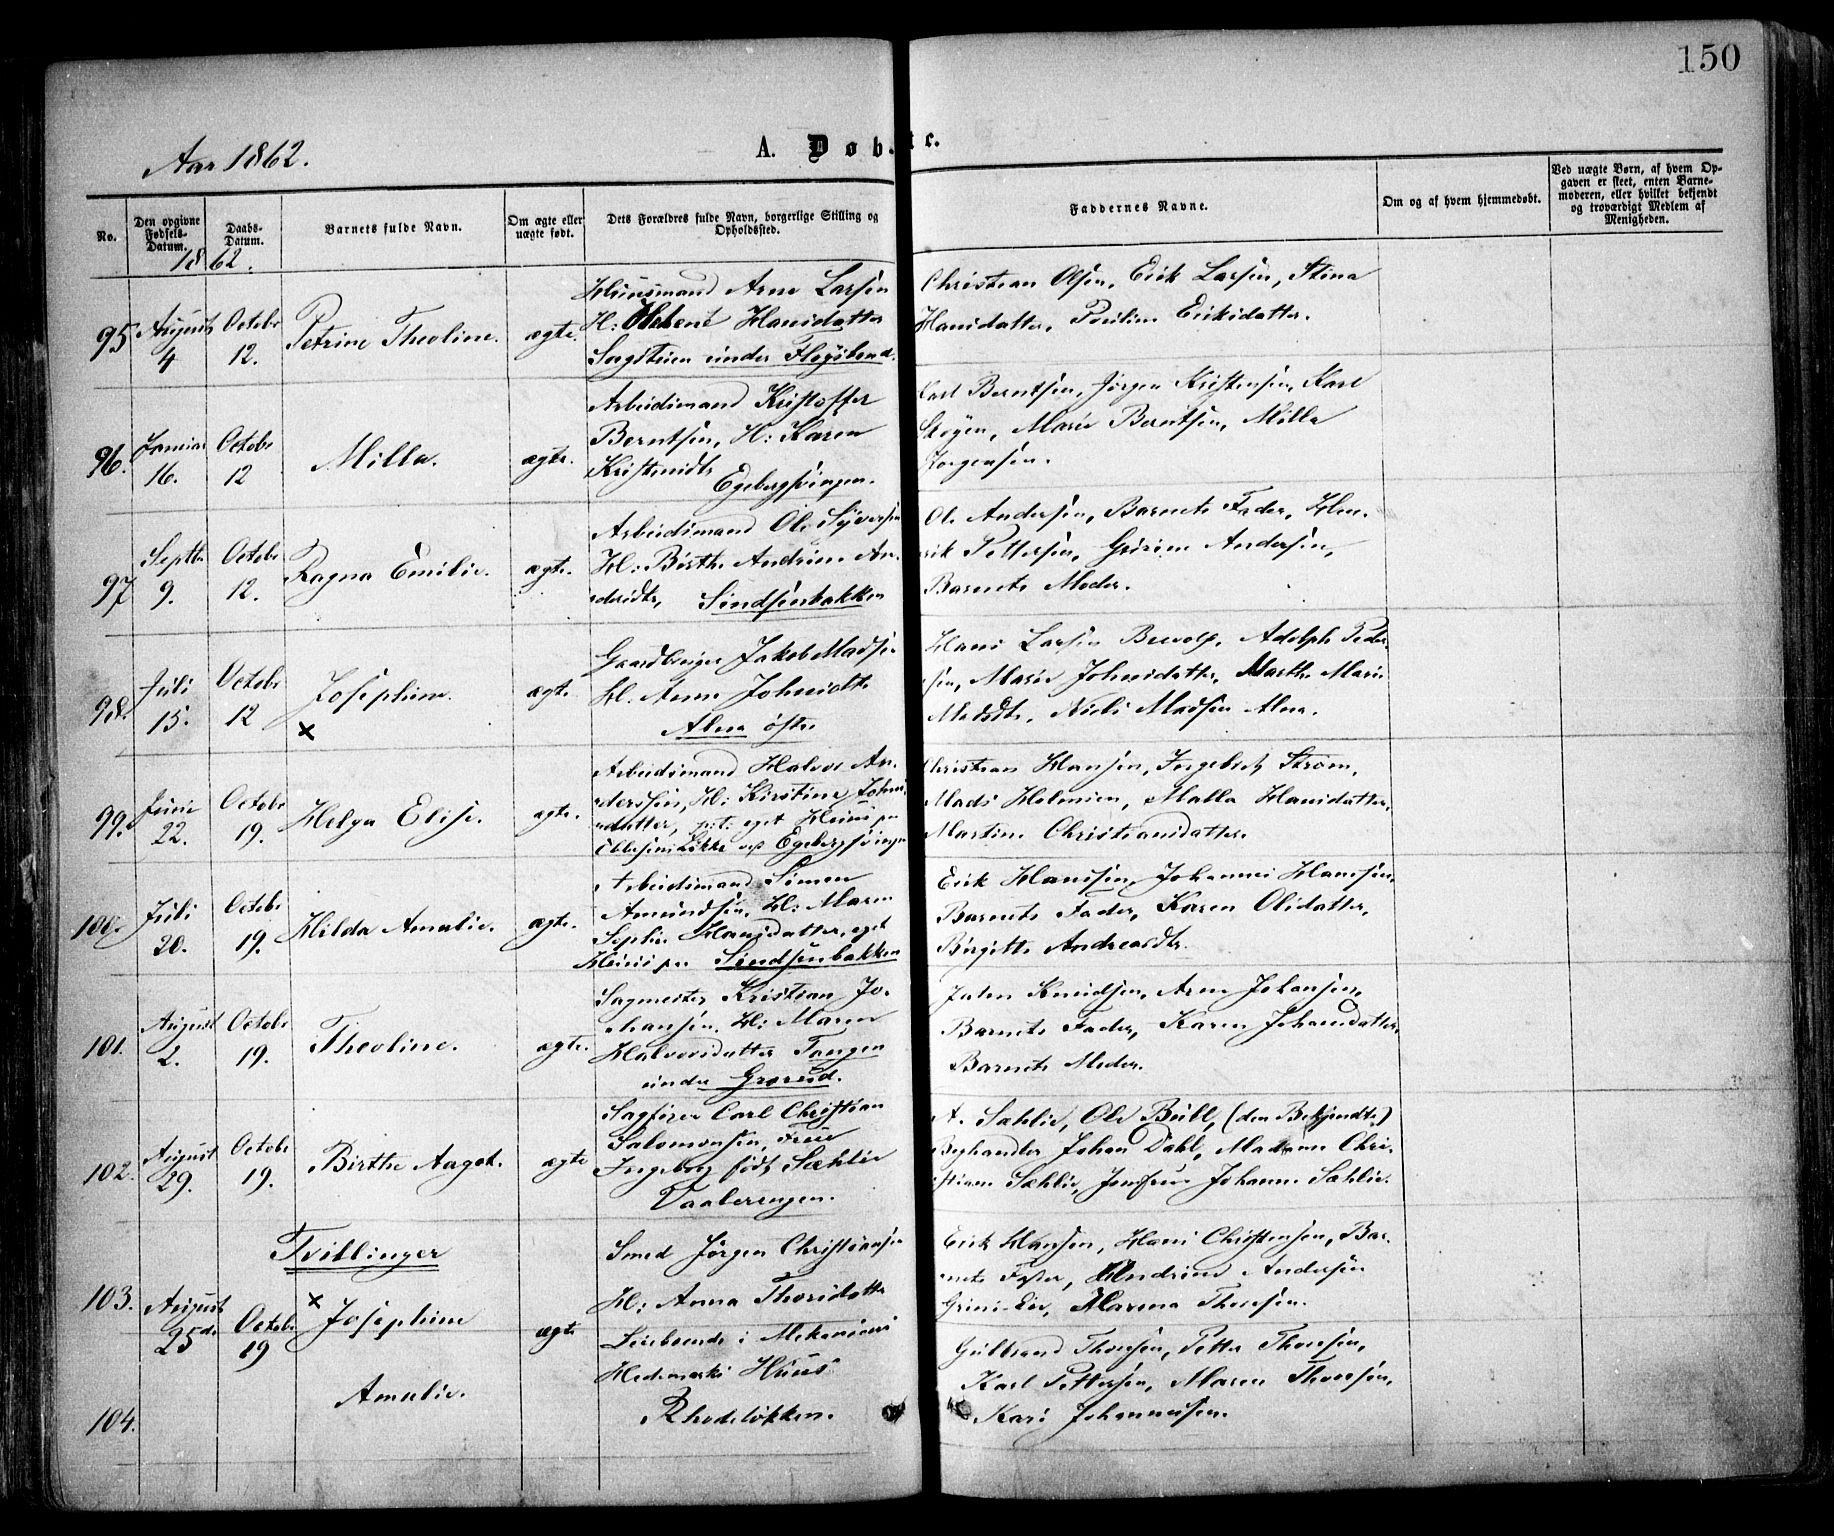 150
Aar 1862.
A. Døbte.
No.
Den opgivne Fødsels-Datum.
Daabs-Datum.
Barnets fulde Navn.
Om ægte eller uægte født.
Dets Forældres fulde Navn, borgerlige Stilling og Opholdssted.
Faddernes Navne.
Om og af hvem hjemmedøbt.
Ved uægte Børn, af hvem Opgaven er skeet, enten Barnemoderen, eller hvilket bekjendt og troværdigt Medlem af Menigheden.
1862.
95 August 4 Octobr 12. Petrine Theoline. ægte.
Huusmand Arne Larsen
H: Helene Hansdatter
Sagstuen under Fløisbond.
Christian Olsen, Erik Larsen, Stina
Hansdatter, Pauline Eriksdatter.
96. Januar 16. Octobr 12 Milla. ægte.
Arbeidsmand Kristoffer
Berntsen, H: Karen
Kristensdtr
Egebergsvingen.
Carl Berntsen, Jørgen Kristensen, Karl
Skøyen, Marie Berntsen, Milla
Jorgensen.
97 Septbr 9. Octobr 12. Ragna Emilie. ægte.
Arbeidsmand Ole Syversen
H: Birthe Andrine An-
dersdtr, Sindsenbakken
Ole Andersen, Barnets Fader, Hen-
rik Pettersen, Gurine Andersen,
Barnets Moder.
98. Juli 15. Octobr 12 Josephine. × ægte
Gaardbruger Jakob Madsen
H. Anne Johnsdtr
Alna østre
Hans Larsen Brevolf, Adolph Peder-
sen, Marie Johnsdatter, Marthe Marie
Madsdtr, Niels Madsen Alna.
99. Juni 22. Octobr 19. Helga Elise. ægte.
Arbeidsmand Halvor An-
derssen, H: Kirstine Johns-
datter, eget Huus paa
Ebbesens Løkke ved Egebergsvingen
Christian Hansen, Ingebret Strøm,
Mads Holmsen, Malla Hansdatter,
Martine Christiansdatter.
100. Juli 20. Octobr 19. Hilda Amalie. ægte.
Arbeidsmand Simen
Amundsen, H: Maren
Sophie Hansdatter, eget
Huus paa Sindsenbakken
Erik Hanssen, Johannes Hanssen,
Barnets Fader, Karen Olsdatter,
Birgitte Andreasdtr.
101. August 2. Octobr 19. Theoline. ægte.
Sagmester Kristian Jo-
hansen. H: Maren
Halvorsdatter Tangen
under Grorud.
Knudsen, Arne Johansen,
Barnets Fader, Karen Johansdatter,
Barnets Moder.
102. August 29. Octobr 19. Birthe Aagot. ægte
Sagfører Carl Christian
Salomonsen, Frue
Ingeborg født Sæhlie
Vaalerengen.
A. Sæhlie, Ole Bull, (den Bekjendte)
Boghandler Johan Dahl, Madame Chri-
stiane Sæhlie, Jomfrue Johanne Sæhlie.
Tvillinger
103. August 25de Octobr 19 × Josephine ægte
Smed Jørgen Christiansen
H: Anna Thorsdatter
Leieboende i Mekanicus
Hedemarks Huus
Rhodeløkken.
Erik Hansen, Hans Christensen, Bar-
nets Fader, Andrine Andersen
Grini-Eie, Marena Thoresen.
104. Amalie.
Gulbrand Thoresen, Petter Thoresen,
Karl Pettersen, Maren Thoresen,
Kari Johannesen.